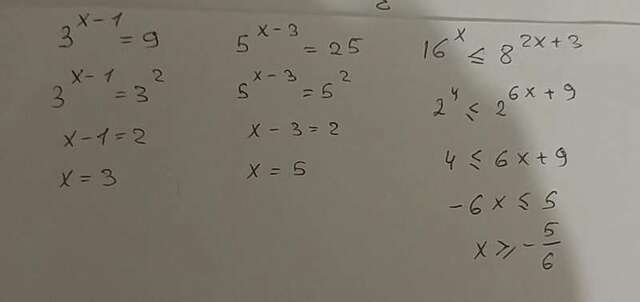 3^{x-1} = 9
3^{x-1} = 3^2
x-1=2
x=3
5^{x-3} = 25
5^{x-3} = 5^2
x-3=2
x=5
16^x ≤ 8^{2x+3}
2^4 ≤ 2^{6x+9}
4 ≤ 6x+9
-6x ≤ 5
x ≥ -\frac{5}{6}